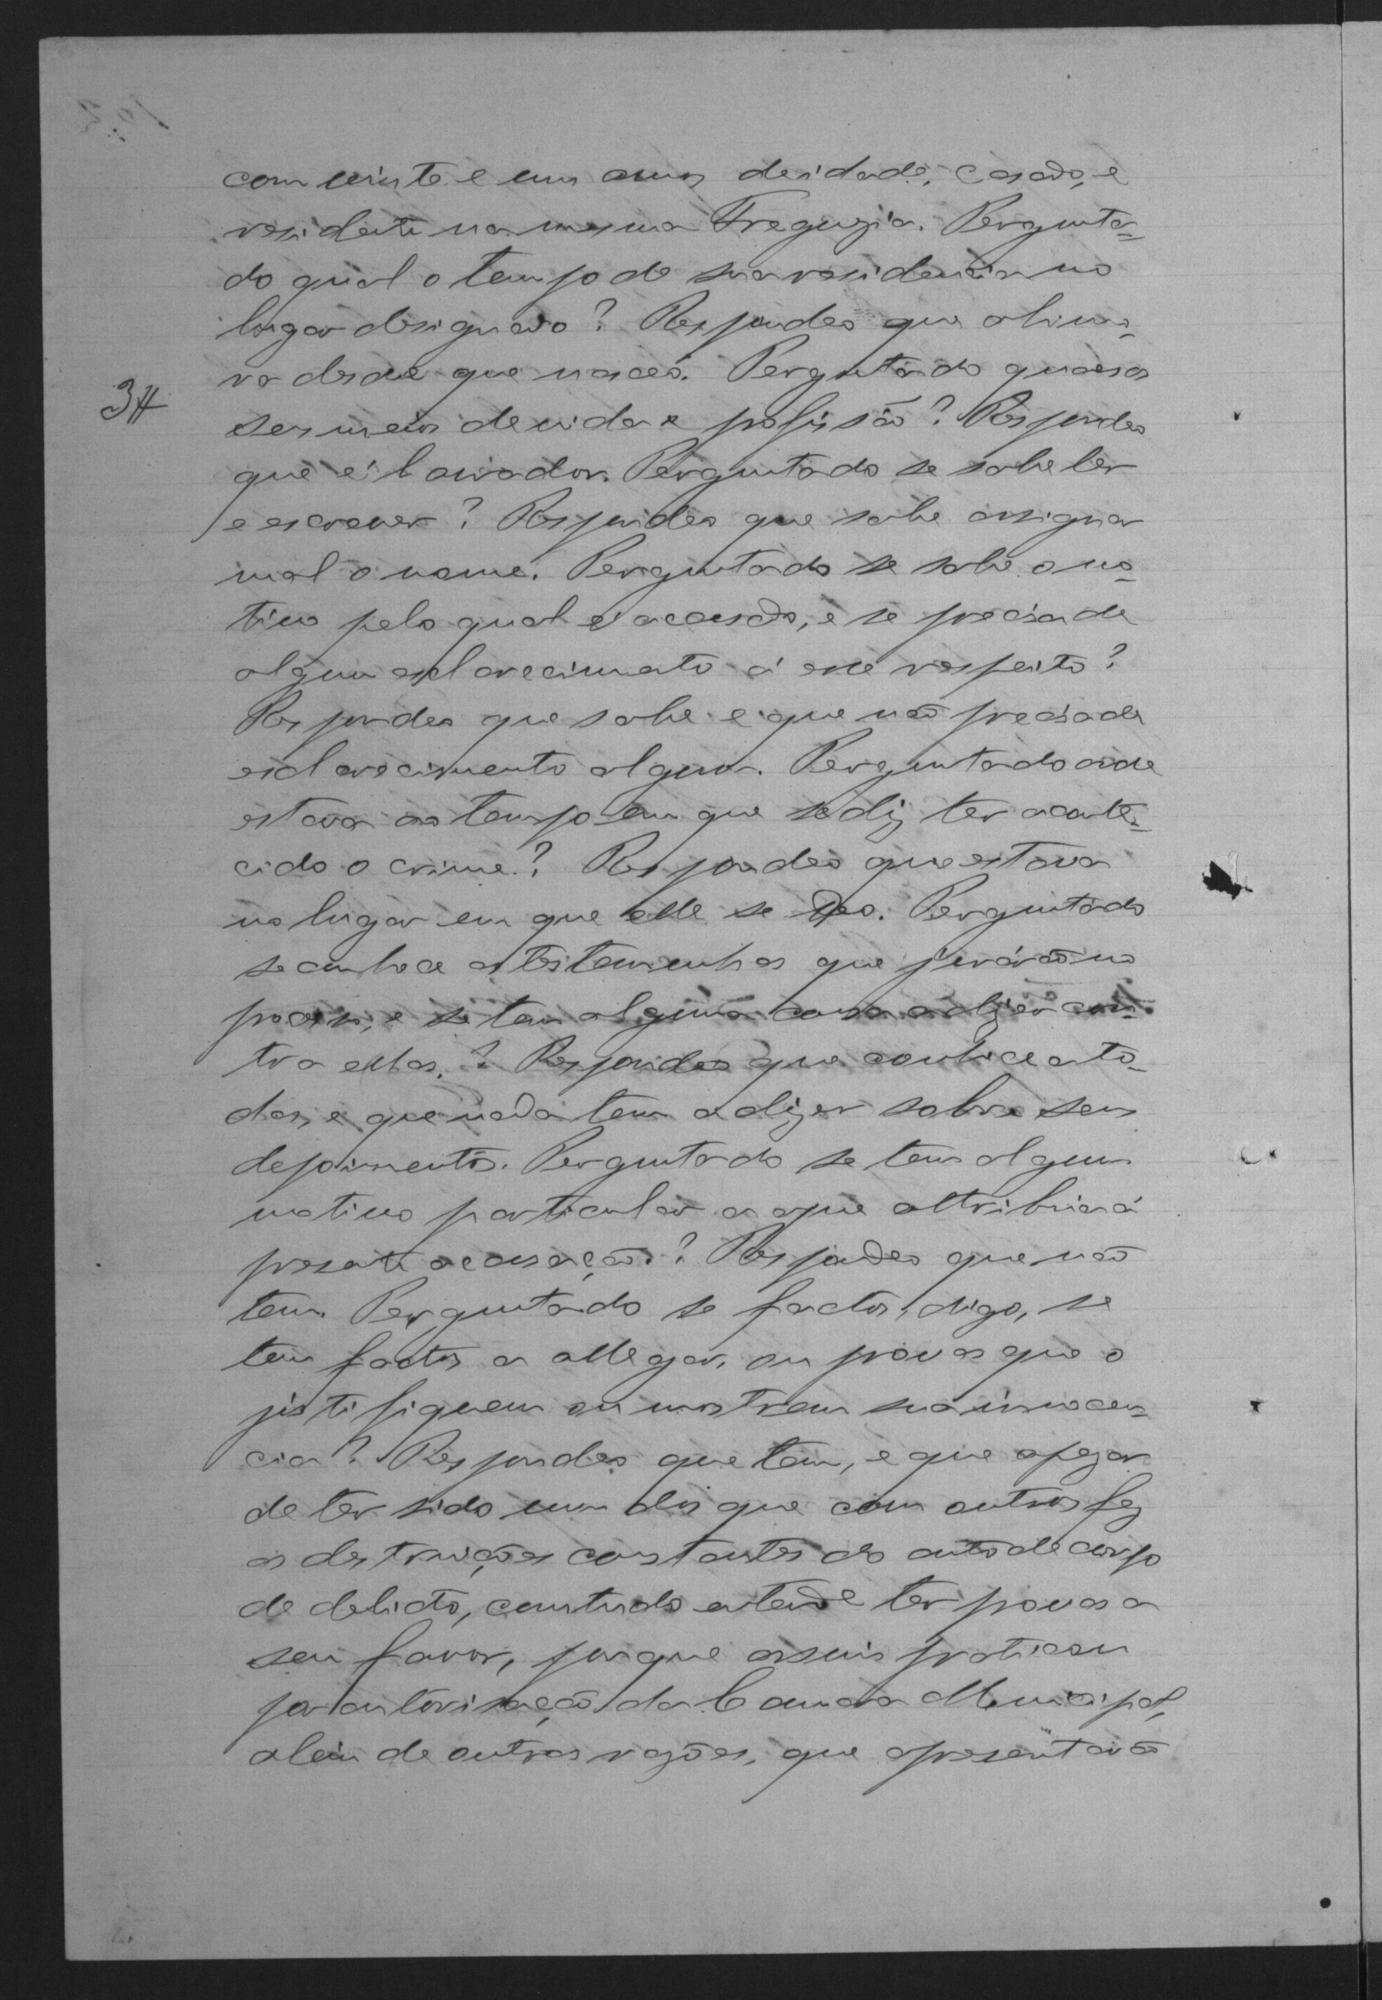 com vinte e um annos de idade, casado, e
residente na mesma Freguezia. Pergunta-
do qual o tempo de sua residencia no
lugar designado? Respondeo que ali mo-
ra desde que nasceo. Perguntado quaes os
seus meios de vida e profissão? Respondeo
que é lavrador. Perguntado se sabe ler
e escrever? Respondeo que sabe assignar
mal o nome. Perguntado se sabe o mo-
tivo pelo qual é accusado, e se precisa de
algum esclarecimento á esse respeito?
Respondeo que sabe e que não precisa de
esclarecimento algum. Perguntado onde
estava ao tempo em que se diz ter aconte-
cido o crime? Respondeo que estava
no lugar em que elle se deo. Perguntado
se conhece as testemunhas que jurárão no
processo, e se tem alguma cousa a dizer con-
tra ellas? Respondeo que conhece a to-
das, e que nada tem a dizer sobre seus
depoimentos. Perguntado se tem algum
motivo particular a que attribua á
presente accusação? Respondeo que não
tem. Perguntado se factos, digo, se
tem factos a allegar, ou provas que o
justifiquem ou mostrem sua innocen-
cia? Respondeo que tem, e que apezar
de ter sido um dos que com outros fez
as destruições constantes do auto de corpo
de delicto, comtudo entende ter provas a
seu favor, porque assim praticou
por autorisação da Camara Municipal,
alem de outras razões, que apresentará
34